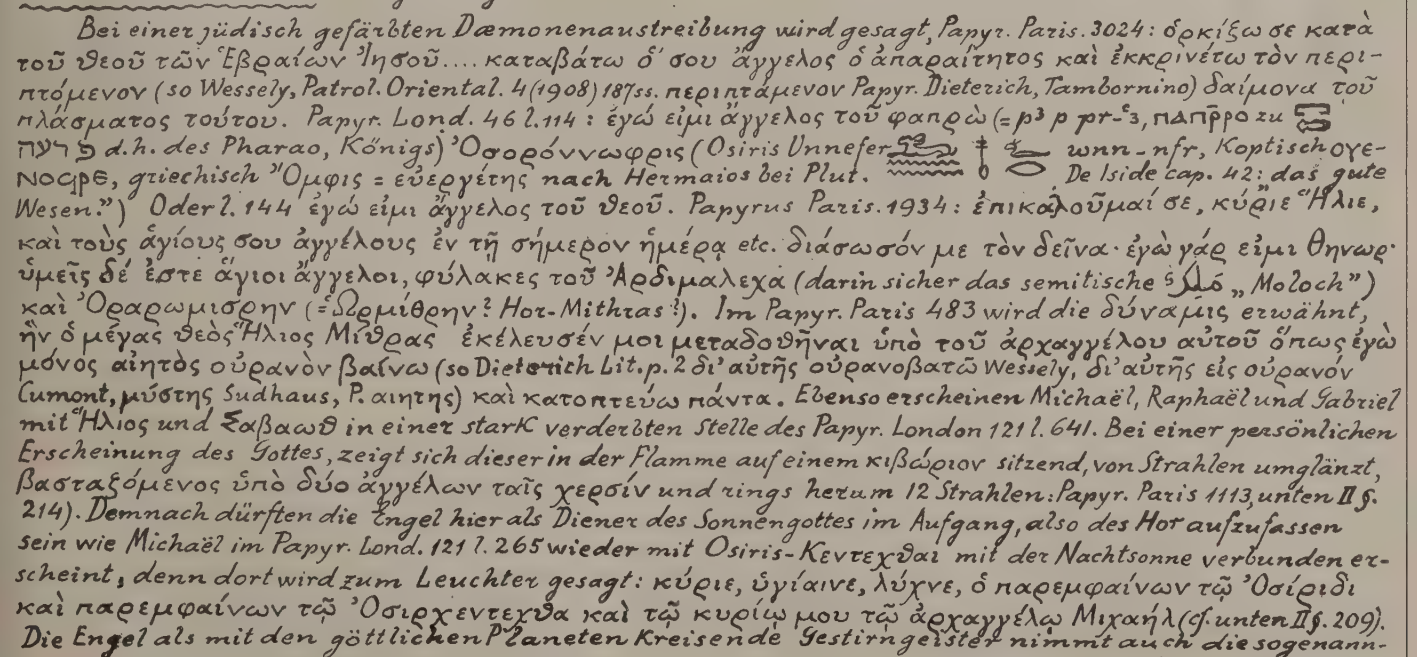 Bei einer jüdisch gefärbten Dæmonenaustreibung wird gesagt, Papyr. Paris. 3024: ὁρκίζω σε κατὰ
τοῦ θεοῦ τῶν Ἑβραίων Ἰησοῦ.... καταβάτω ὁ' σου ἄγγελος ὁ ἀπαραίτητος καὶ ἐκκρινέτω τὸν περι-
πτόμενον (so Wessely, Patrol. Oriental. 4 (1908) 187ss. περιπτάμενον Papyr. Dieterich, Tambornino) δαίμονα τοῦ
πλάσματος τούτου. Papyr. Lond. 46 l. 114: ἐγώ εἰμι ἄγγελος τοῦ φαπρὼ (= p3 p pr-ꜥ3, ⲡⲁⲡⲣ̅ⲣⲟ zu
פרעה d. h. des Pharao, Königs) Ὀσορόννωφρις (Osiris Unnefer wnn-nfr, Koptisch ⲟⲩⲉ-
ⲛⲟϥⲣⲉ, griechisch Ὄμφις = εὐεργέτης nach Hermaios bei Plut. De Iside cap. 42: das gute
Wesen.") Oder l. 144 ἐγώ εἰμι ἄγγελος τοῦ θεοῦ. Papyrus Paris. 1934: ἐπικαλοῦμαί σε, κύριε Ἥλιε,
καὶ τοὺς ἁγίους σου ἀγγέλους ἐν τῇ σήμερον ἡμέρᾳ etc. διάσωσόν με τὸν δεῖνα· ἐγὼ γάρ εἰμι θηνωρ·
ὑμεῖς δέ ἐστε ἅγιοι ἄγγελοι, φύλακες τοῦ Ἀρδιμαλεχά (darin sicher das semitische „Moloch")
καὶ Ὀραρωμισρην (= Ὡρμίθρην? Hor-Mithras?). Im Papyr. Paris 483 wird die δύναμις erwähnt,
ἣν ὁ μέγας θεὸς Ἥλιος Μίθρας ἐκέλευσέν μοι μεταδοθῆναι ὑπὸ τοῦ ἀρχαγγέλου αὐτοῦ ὅπως ἐγὼ
μόνος αἰητὸς οὐρανὸν βαίνω (so Dieterich Lit. p. 2 δι' αὐτῆς οὐρανοβατῶ Wessely, δι' αὐτῆς εἰς οὐρανόν
Cumont, μύστης Sudhaus, P. αιητης) καὶ κατοπτεύω πάντα. Ebenso erscheinen Michaël, Raphaël und Gabriel
mit Ἥλιος und Σαβαωθ in einer stark verderbten Stelle des Papyr. London 121 l. 641. Bei einer persönlichen
Erscheinung des Gottes, zeigt sich dieser in der Flamme auf einem κιβώριον sitzend, von Strahlen umglänzt,
βασταζόμενος ὑπὸ δύο ἀγγέλων ταῖς χερσίν und rings herum 12 Strahlen: Papyr. Paris 1113, unten II §.
214). Demnach dürften die Engel hier als Diener des Sonnengottes im Aufgang, also des Hor aufzufassen
sein wie Michaël im Papyr. Lond. 121 l. 265 wieder mit Osiris-Κεντεχθαι mit der Nachtsonne verbunden er-
scheint, denn dort wird zum Leuchter gesagt: κύριε, ὑγίαινε, λύχνε, ὁ παρεμφαίνων τῷ Ὀσίριδι
καὶ παρεμφαίνων τῷ Ὀσιρχεντεχθα καὶ τῷ κυρίῳ μου τῷ ἀρχαγγέλῳ Μιχαήλ (cf. unten II §. 209).
Die Engel als mit den göttlichen Planeten Kreisende Gestirngeister nimmt auch die sogenann-